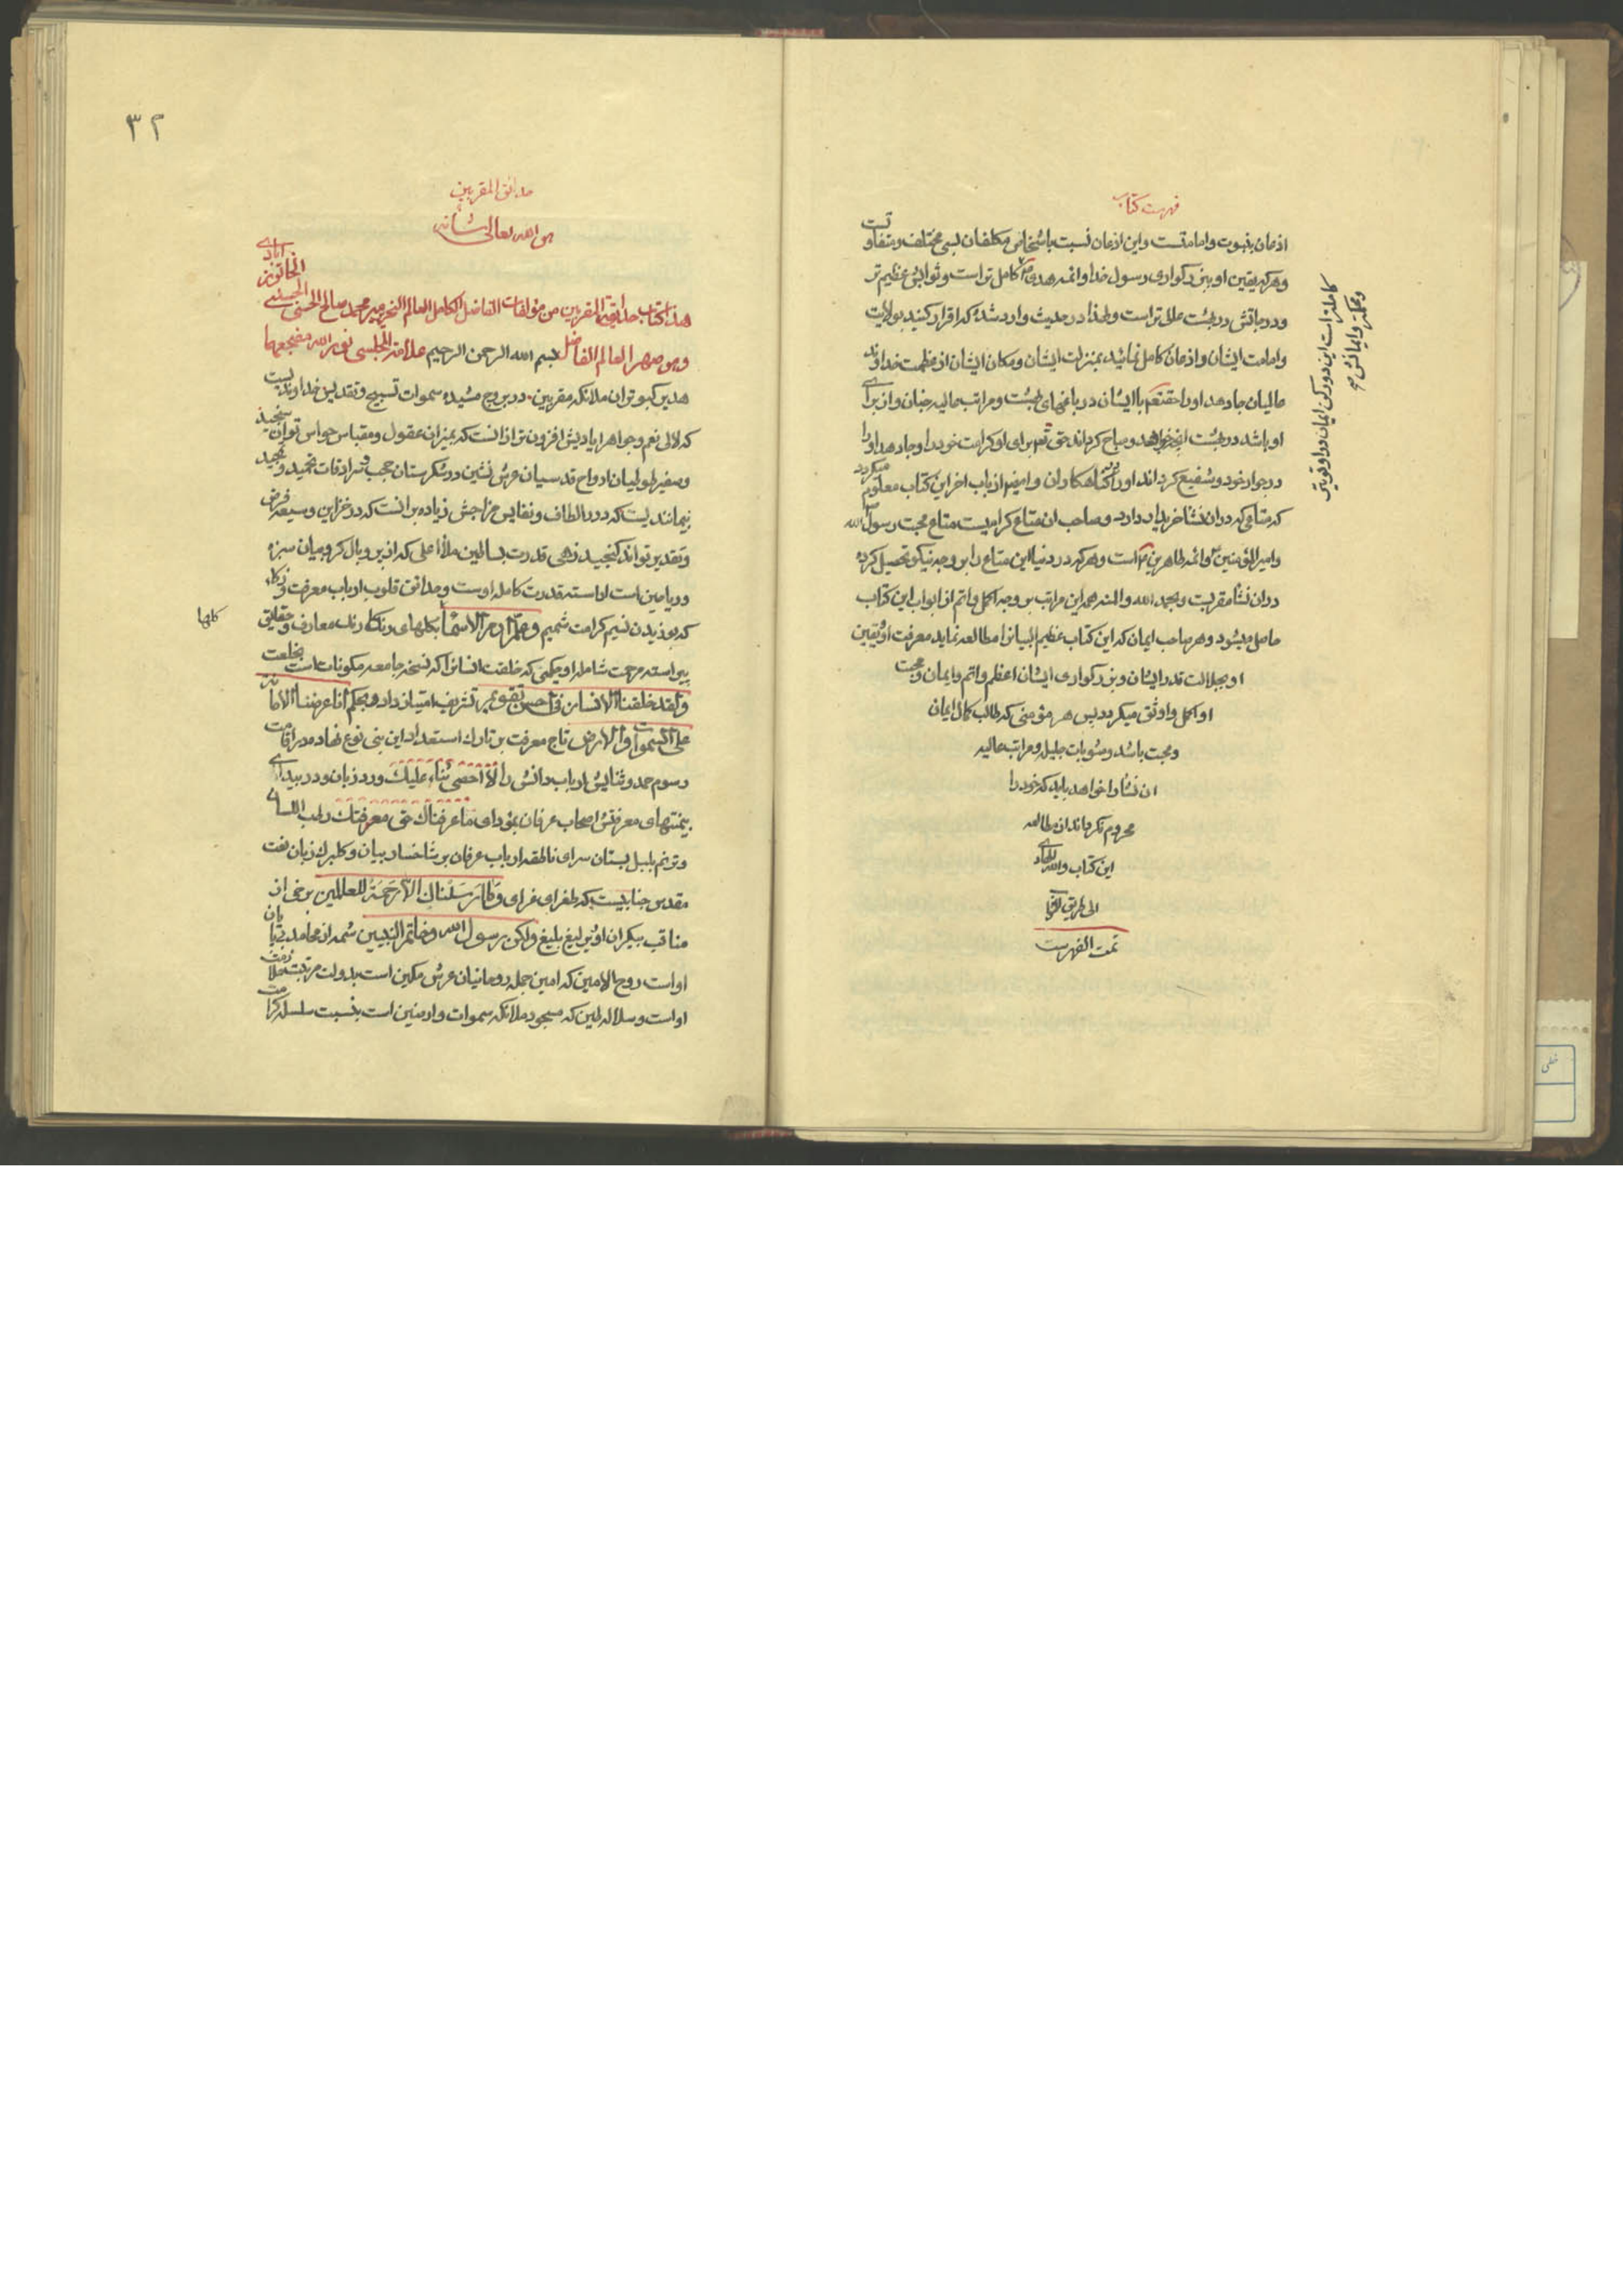 فهرست کتاب
اذعان بنبوت و امامتست و این اذعان نسبت باشخاص مکلفان بسی مختلف و متفاوتست
و هر که یقین او ببزرکواری رسول خدا و ائمه هدی کامل تر است و ثوابش عظیم تر
و درجاتش در بهشت عالی تر است و لهذا در حدیث وارد شده که اقرار کنید بولایت
و امامت ایشان و اذعان کامل نمائید بمنزلت ایشان و مکان ایشان از عظمت خداوند
عالمیان جا دهد او را حقتعالی با ایشان در باغهای بهشت و مراتب عالیه جنان و از برای
او باشد در بهشت انچه خواهد و مباح کرداند حق تعالی برای او کرامت خود را و جا دهد او را
در جوار خود و شفیع کرداند او را در کناهکاران و ایضا از باب اخر این کتاب معلوم میکردد
که متاعی که در ان نشا خریدار دارد و صاحب ان متاع کرامیست متاع محبت رسول الله
و امیر المؤمنین و ائمه طاهرین است و هر که در دنیا این متاع را بر وجه نیکو تحصیل کرده
در ان نشا مقربست و بحمد الله و المنه همه این مراتب بر وجه اکمل و اتم از ابواب این کتاب
حاصل میشود و هر صاحب ایمان که این کتاب عظیم البیان را مطالعه نماید معرفت او و یقین
او بجلالت قدر ایشان و بزرکواری ایشان اعظم و اتم و ایمان و محبت
او اکمل و اوثق میکردد پس هر مؤمنی که طالب کمال ایمان
و محبت باشد و مثوبات جلیله و مراتب عالیه
ان نشا را خواهد باید که خود را
محروم نکرداند از مطالعه
این کتاب والله الهادی
الی طریق
تمت الفهرست
کامله است این دو رکن ایمان در او قویتر
و محکمتر و ایمانش
۳۲
حدائق المقربین
هو الله تعالی شانه
هذا کتاب حدایق المقربین من مؤلفات الفاضل الکامل العالم النحریر میر محمد صالح الحسنی الحسینی الخاتون ابادی
و هو صهر العالم الفاضل علامة المجلسی نور الله مضجعهما بسم الله الرحمن الرحیم
هدیر کبوتران ملائکه مقربین در بروج مشیده سموات تسبیح و تقدیس خداوندیست
که لالی نعم و جواهر ایادیش افزون تر از انست که بمیزان عقول و مقیاس حواس توان سنجید
و صفیر طوطیان ارواح قدسیان عرش نشین در شکرستان حجب و سرادقات تحمید و تمجید
بیمانندیست که درر الطاف و نفایس مزاجش زیاده بر انست که در خزاین وسیعه فرض
و تقدیر تواند کنجید زهی قدرت بساطین ملأ اعلی که از پر و بال کروبیان سبزه
و ریاحین است اراسته قدرت کامله اوست و حدائق قلوب ارباب معرفت و ذکاء
که بوزیدن نسیم کرامت شمیم و علم ادم الاسماء بکلهای رنکارنک معارف و حقایق
کلها
پیراسته مرحمت شامله او حکیمی که خلقت انسانرا که نسخه جامعه مکوناتست بخلعت
و لقد خلقنا الانسان فی احسن تقویم تشریف امتیاز داد و بحکم انا عرضنا الامانة
علی السموات و الارض تاج معرفت بر تارک استعداد این بنی نوع نهاد مدراقامت
رسوم حمد و ثنایش ارباب دانش را لا احصی ثناء علیک ورد زبان و در بیدای
بیمنتهای معرفتش اصحاب عرفان بمؤدای ما عرفناک حق معرفتک رطب اللسان
و ترنم بلبل بستان سرای ناطقه ارباب عرفان بر شاخسار بیان و کلبرک زبان نعت
مقدس جنابیست که طغرای غرای و ما ارسلناک الا رحمة للعالمین برخی از
مناقب بیکران او و تبلیغ بلیغ ولکن رسول الله و خاتم النبیین شمه از محامد بی پایان
او است روح الامین که امین جمله روحانیان عرش مکین است بدولت مرتبت ملازمت
او است و سلاله طین که مسجود ملائکه سموات و ارضین است بنسبت سلسله کرامت
خطی